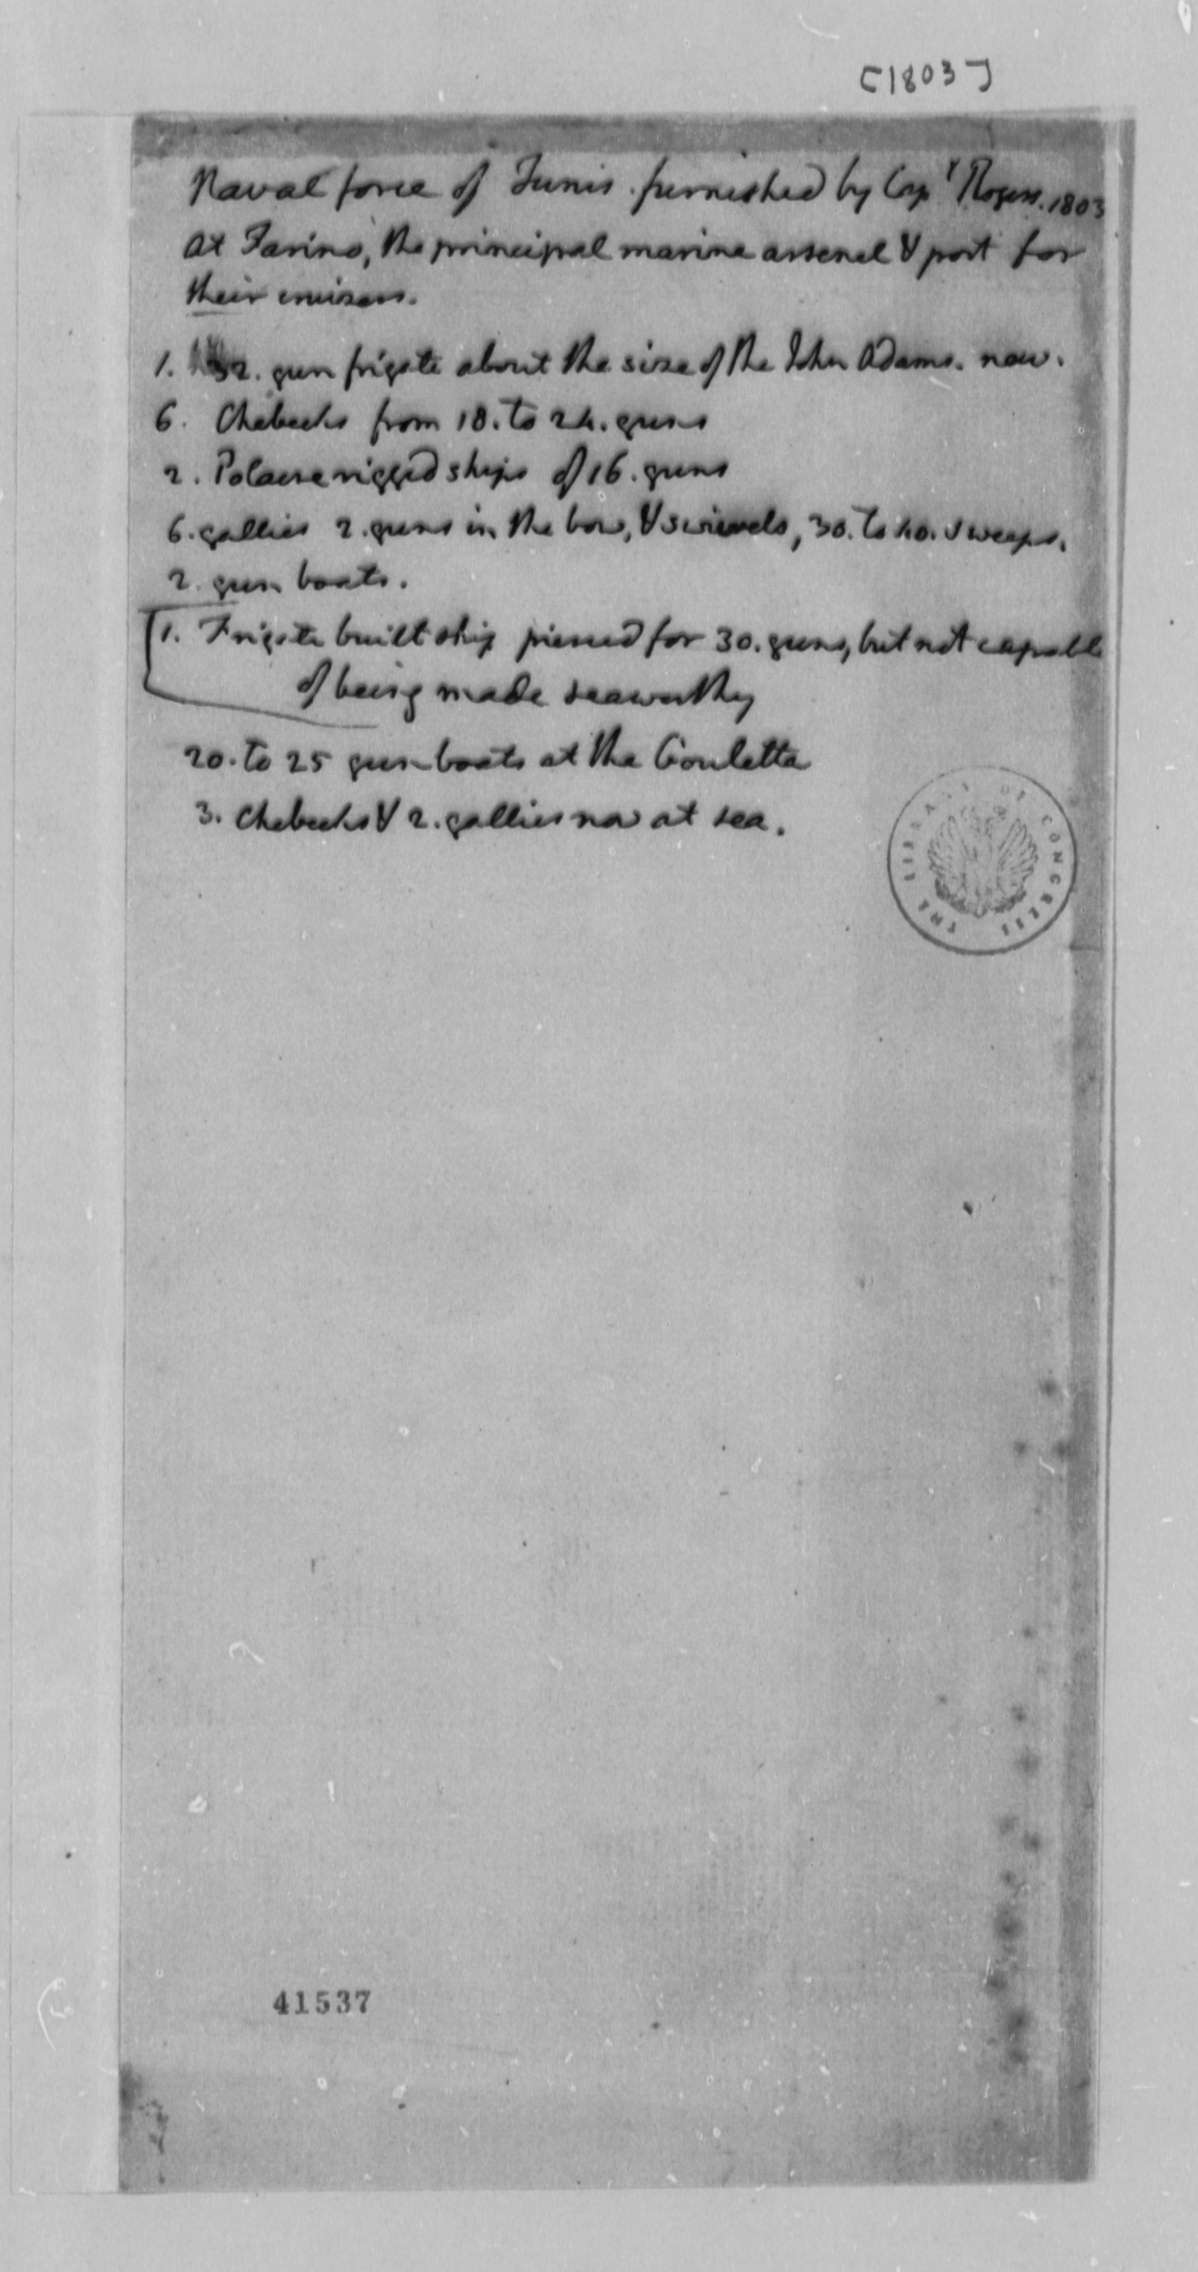 [1803]
Naval force of Tunis. furnished by Capt Rogers. 1803
at Farino, the principal marine arsenal & port for
their cruisers.
1. 32. gun frigate about the size of the John Adams. new.
6. Chebecks from 18. to 24. guns
2. Polacre rigged ships of 16. guns
6. gallies 2. guns in the bow, & swivels, 30. to 40. sweeps.
2. gun boats.
[1. Frigate built ship pierced for 30. guns, but not capable
of being made seaworthy
20. to 25 gun-boats at the Gouletta
3. chebecks & 2. gallies now at sea.
THE LIBRARY OF CONGRESS
41537